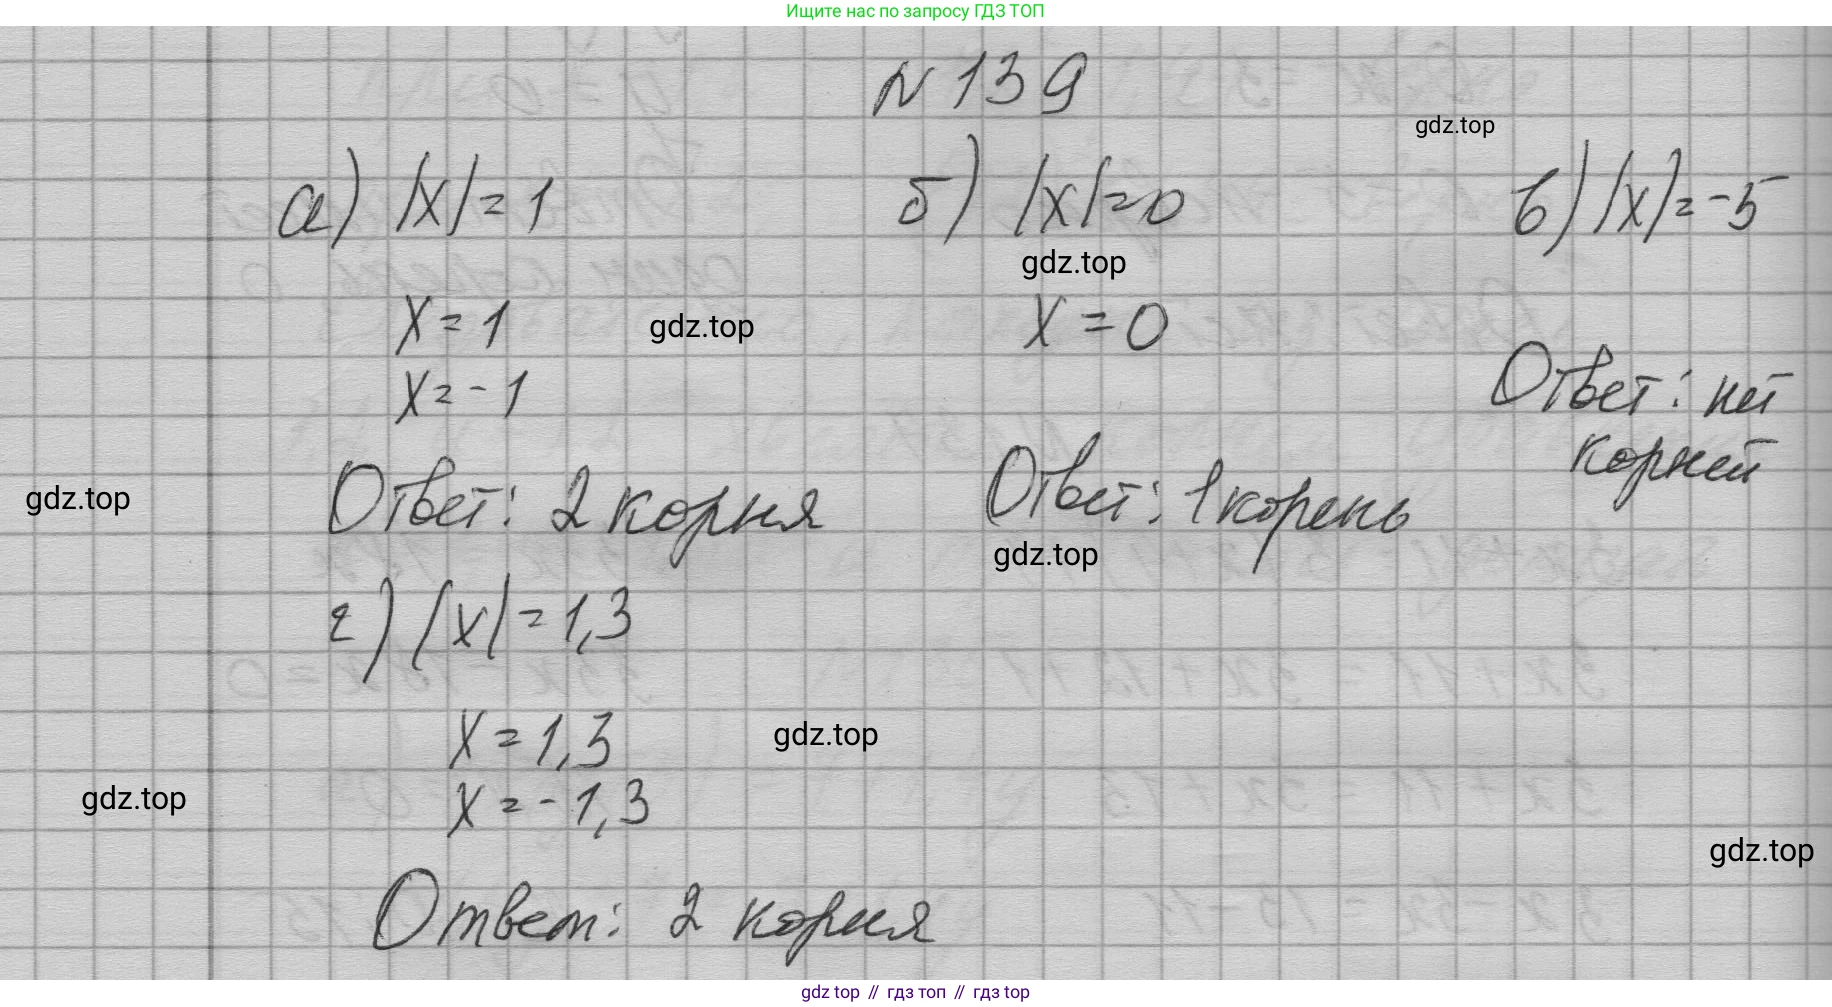 Ищите нас по запросу ГДЗ ТОП
N 139
gdz.top
а) |x| = 1
б) |x| = 0
в) |x| = -5
gdz.top
x = 1
gdz.top
x = 0
x = -1
Ответ: нет
корней
gdz.top
Ответ: 2 корня
Ответ: 1 корень
gdz.top
г) |x| = 1,3
x = 1,3
gdz.top
x = -1,3
gdz.top
gdz.top
Ответ: 2 корня
gdz top // гдз топ // гдз top